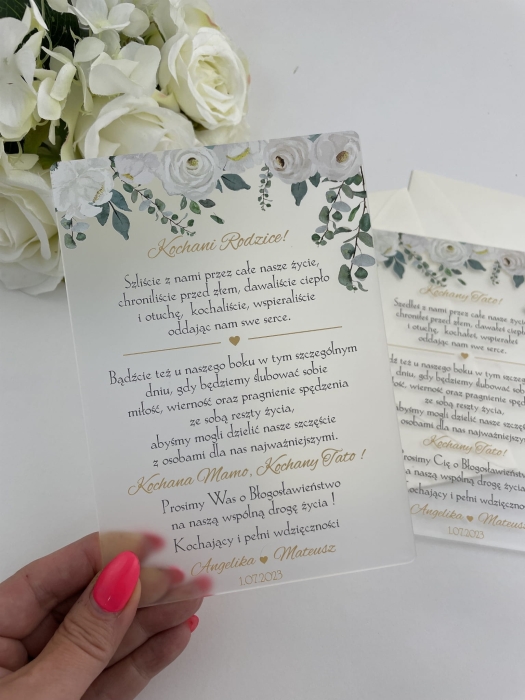 Kochani Rodzice!
Szliście z nami przez całe nasze życie,
chroniliście przed złem, dawaliście ciepło
i otuchę, kochaliście, wspieraliście
oddając nam swe serce.
Bądźcie też u naszego boku w tym szczególnym
dniu, gdy będziemy ślubować sobie
miłość, wierność oraz pragnienie spędzenia
ze sobą reszty życia,
abyśmy mogli dzielić nasze szczęście
z osobami dla nas najważniejszymi.
Kochana Mamo, Kochany Tato !
Prosimy Was o Błogosławieństwo
na naszą wspólną drogę życia !
Kochający i pełni wdzięczności
Angelika Mateusz
1.07.2023
Kochany Tato!
Szedłeś z nami przez całe nasze życie
chroniłeś przed złem, dawałeś ciepło
i otuchę, kochałeś, wspierałeś
oddając nam swe serce.
też u naszego boku w tym szczegól
dniu, gdy będziemy ślubować sob
wierność oraz pragnienie spęd
ze sobą reszty życia,
abyśmy mogli dzielić nasze szczęś
osobami dla nas najważniejszy
Kochany Tato!
Prosimy Cię o Błogosławień
naszą wspólną drogę życia
Kochający i pełni wdzięczno
Angelika Mateusz
1.07.2023